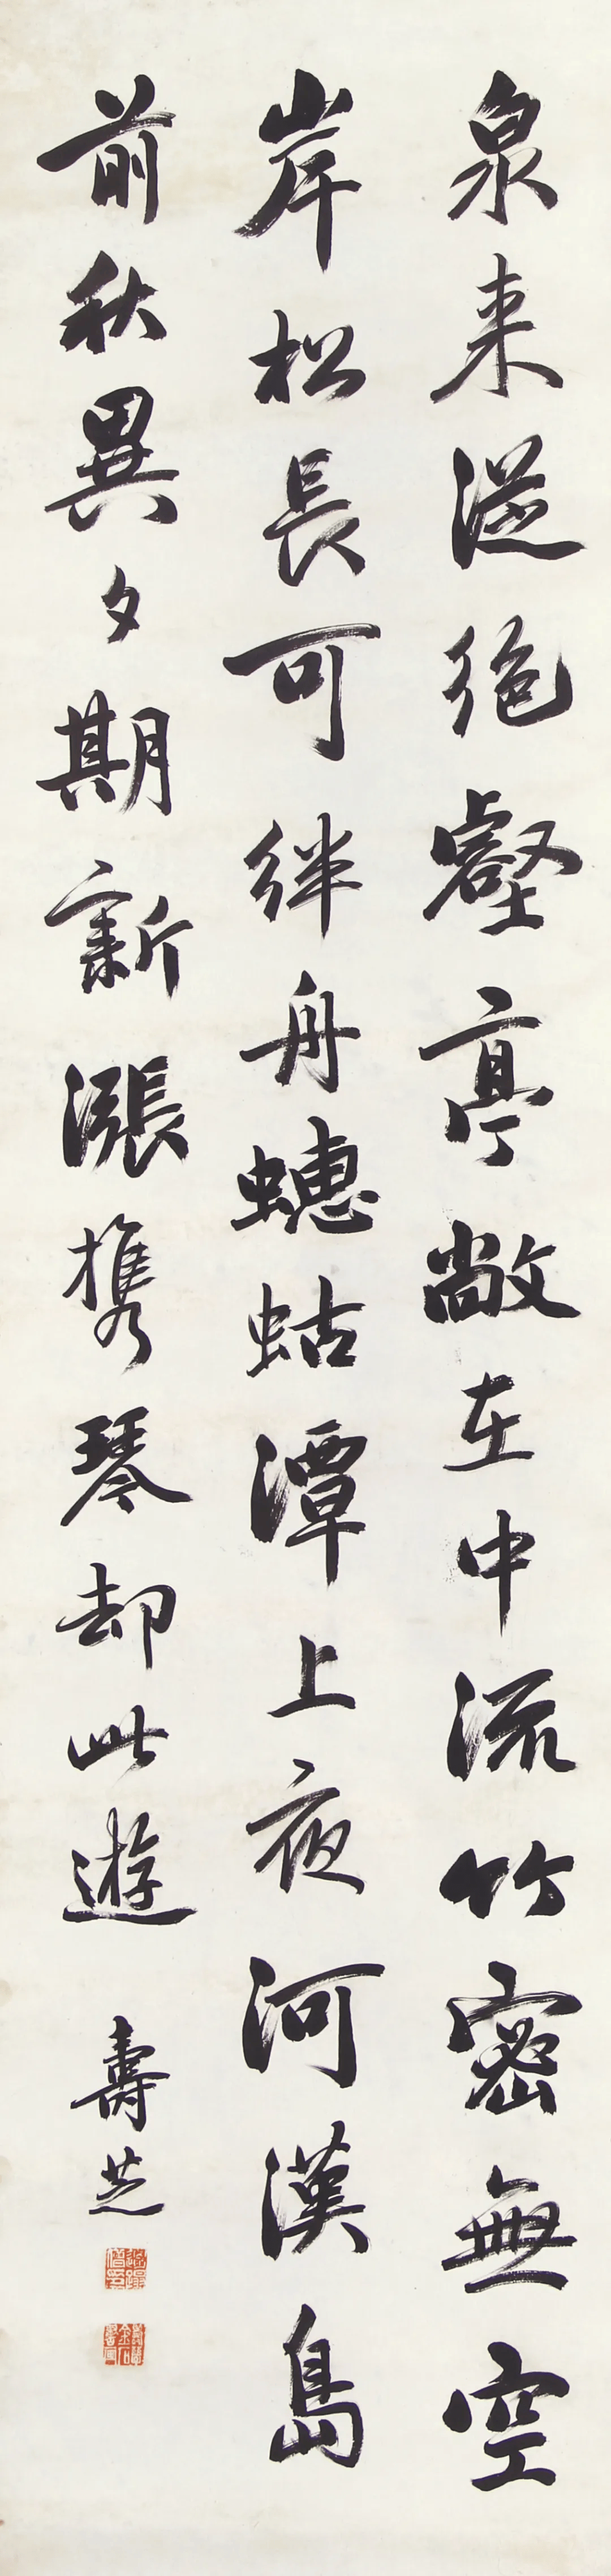 泉来從絶壑亭敞在中流竹密無空
岸松長可絆舟蟪蛄潭上夜河漢島
前秋異夕期新漲携琴却此遊
壽芝